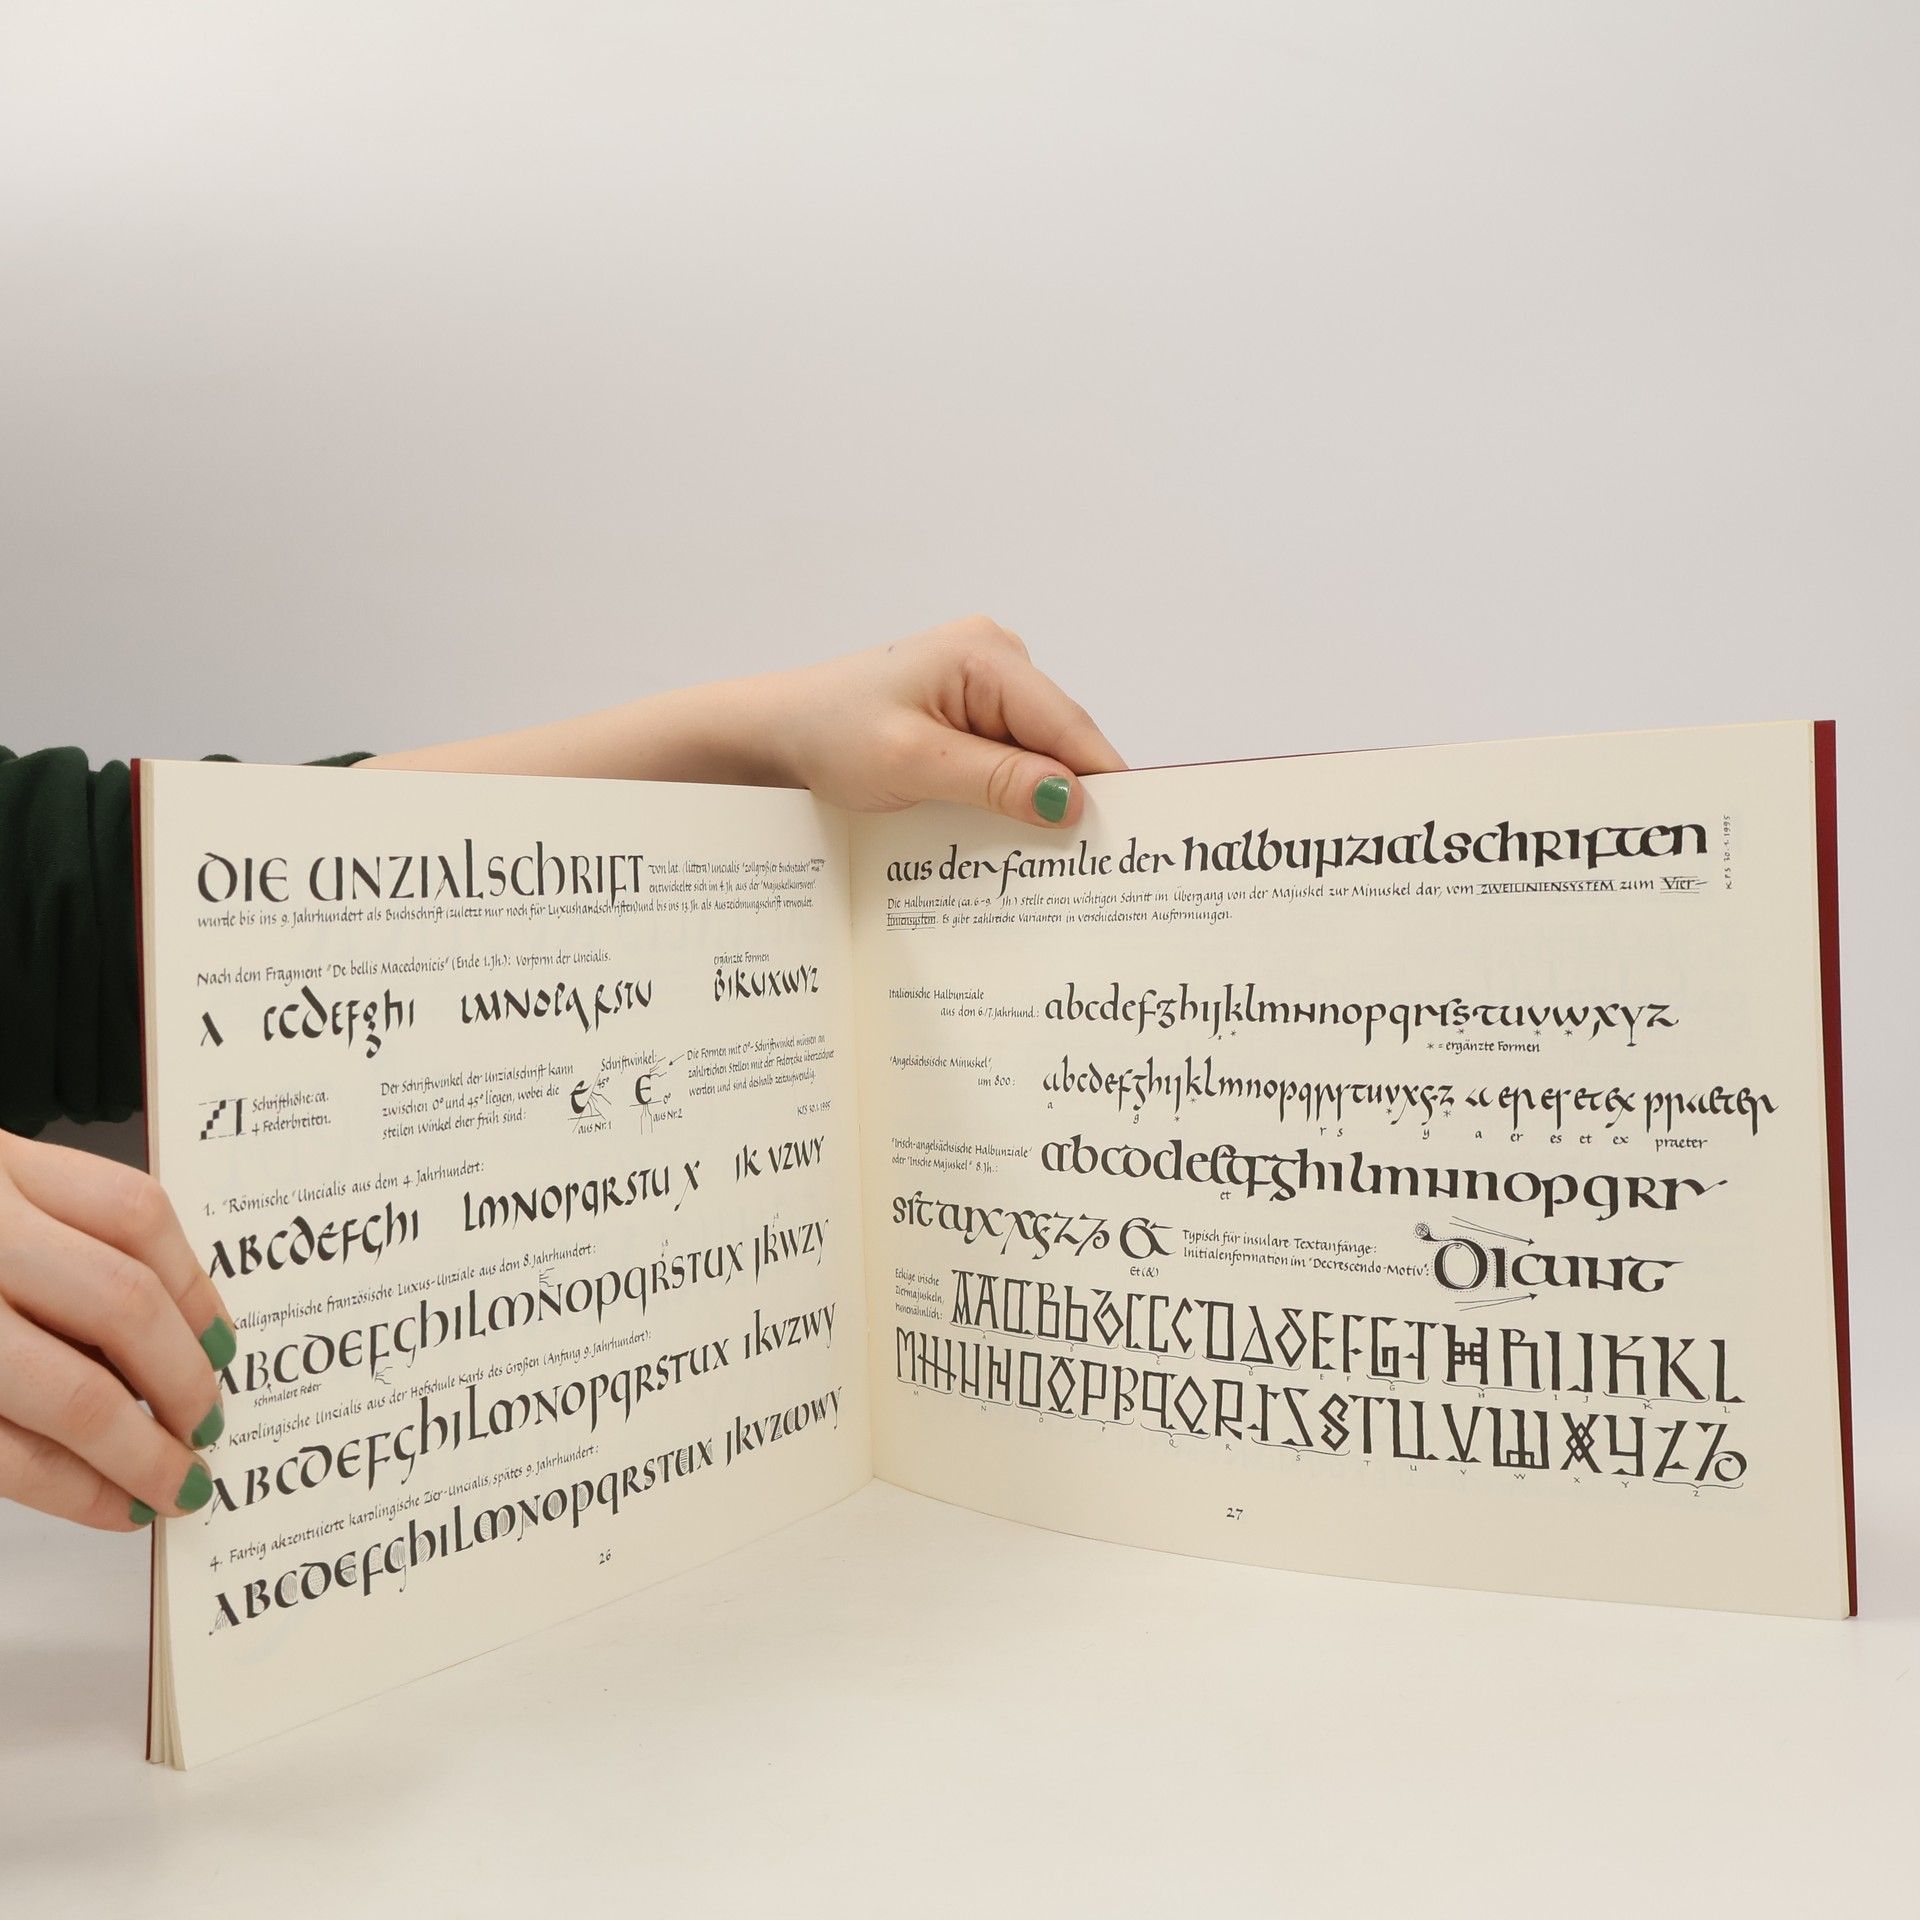 DIE UNZIALSCHRIFT von lat. (littera) uncialis "zollgroß(er Buchstabe)"
entwickelte sich im 4. Jh. aus der "Majuskelkursiven".
wurde bis ins 9. Jahrhundert als Buchschrift (zuletzt nur noch für Luxushandschriften) und bis ins 13. Jh. als Auszeichnungsschrift verwendet.
Nach dem Fragment "De bellis Macedonicis" (Ende 1. Jh.): Vorform der Uncialis.
ergänzte Formen
A CCDEFGHI LMNOPQRSTU BIKUXWYZ
Schrifthöhe: ca.
4 Federbreiten.
Der Schriftwinkel der Unzialschrift kann
zwischen 0° und 45° liegen, wobei die
steilen Winkel eher früh sind:
Schriftwinkel:
45°
0°
aus Nr. 1
aus Nr. 2
Die Formen mit 0°-Schriftwinkel müssen an
zahlreichen Stellen mit der Federecke überzeichnet
werden und sind deshalb zeitaufwendig.
KFS 30.1.1995
1. "Römische" Uncialis aus dem 4. Jahrhundert:
ABCDEFGHI LMNOPQRSTU X IK VZWY
Kalligraphische französische Luxus-Unziale aus dem 8. Jahrhundert:
ABCDEFGHILMNOPQRSTUX JKWZY
schmalere Feder
3. Karolingische Uncialis aus der Hofschule Karls des Großen (Anfang 9. Jahrhundert):
ABCDEFGHILMNOPQRSTUX IKVZWY
4. Farbig akzentuierte karolingische Zier-Uncialis, spätes 9. Jahrhundert:
ABCDEFGHILMNOPQRSTUX JKVZWWY
26
aus der familie der halbunzialschriften
KFS 30.1.1995
Die Halbunziale (ca. 6.-9. Jh.) stellt einen wichtigen Schritt im Übergang von der Majuskel zur Minuskel dar, vom ZWEILINIENSYSTEM zum Vier-
liniensystem. Es gibt zahlreiche Varianten in verschiedensten Ausformungen.
Italienische Halbunziale
aus dem 6./7. Jahrhund.: abcdefghijklmNnopqrſstuvwxyz
* = ergänzte Formen
"Angelsächsische Minuskel",
um 800: abcdefghijklmnopqrrſstuvxyz a er es et ex praeter
a g r s y a er es et ex praeter
"Irisch-angelsächsische Halbunziale"
oder "Irische Majuskel" 8. Jh.: abcdde&fghilmNnopqRr
et
sſtuxxyzz &
Et (&)
Typisch für insulare Textanfänge:
Initialenformation im "Decrescendo-Motiv":
DICUNT
Eckige irische
Ziermajuskeln,
runenähnlich:
AAABBBCCCDDDEFGTHHIJKKL
MMNNOOPPQQRRSSSTUVWXYZZ
27